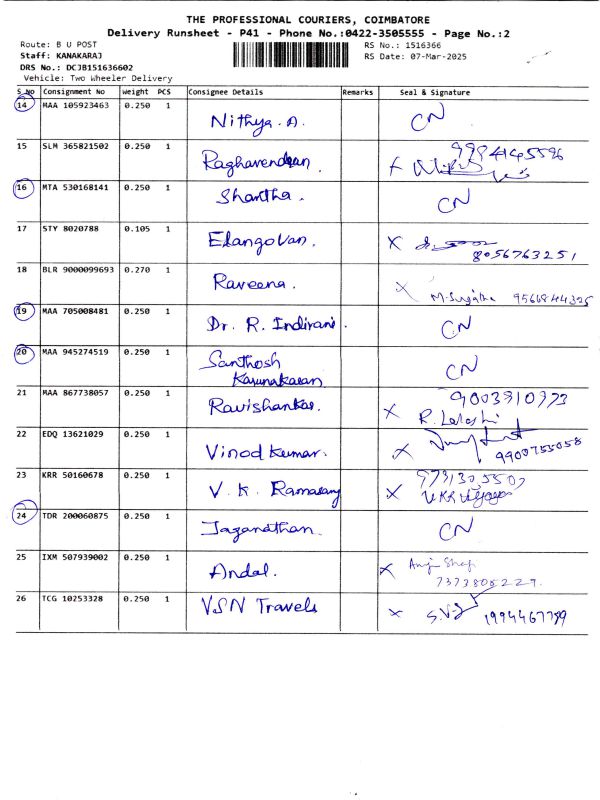 THE PROFESSIONAL COURIERS, COIMBATORE
Delivery Runsheet - P41 - Phone No.:0422-3505555 - Page No.:2
Route: B U POST RS No.: 1516366
Staff: KANAKARAJ RS Date: 07-Mar-2025
DRS No.: DCJB151636602
Vehicle: Two Wheeler Delivery
S.No Consignment No Weight PCS Consignee Details Remarks Seal & Signature
14 MAA 105923463 0.250 1 Nithya. A. CN
15 SLM 365821502 0.250 1 Raghavendran 9984145596
16 MTA 530168141 0.250 1 Shantha. CN
17 STY 8020788 0.105 1 Elangovan. X
8056763251
18 BLR 9000099693 0.270 1 Raveena. X
M. Sujatha 9566844325
19 MAA 705008481 0.250 1 Dr. R. Indirani. CN
20 MAA 945274519 0.250 1 Santhosh Karunakaran CN
21 MAA 867738057 0.250 1 Ravishankar. X 9003310373
22 EDQ 13621029 0.250 1 Vinod Kumar. X 9900755058
23 KRR 50160678 0.250 1 V. K. Ramasamy X
24 TDR 200060875 0.250 1 Jaganathan. CN
25 IXM 507939002 0.250 1 Andal. X
26 TCG 10253328 0.250 1 VSN Travels X 1994467789